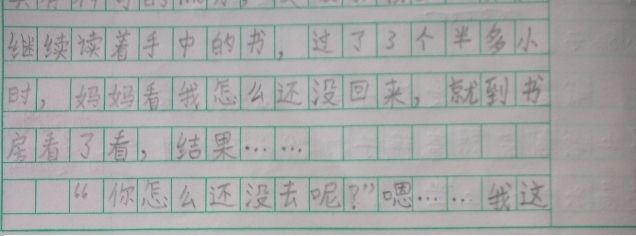 继续读着手中的书，过了3个半多小
时，妈妈看我怎么还没回来，就到书
房看了看，结果……
“你怎么还没去呢？”嗯……我这